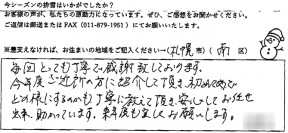 今シーズンの排雪はいかがでしたか？
お客様の声が、私たちの原動力になっています。ぜひ、ご感想をお聞かせください。
ご返信は郵送またはFAX（011-879-1951）にてお願いいたします。
※差支えなければ、お住まいの地域をご記入ください→（札幌市）（南区）
毎回とっても丁寧で感謝致しております。
今年度ご近所の方に紹介して頂き、初めてで
どの様にするかも丁寧に教えて頂き、安心してお任せ
出来、助かっています。来年度も宜しくお願いします。